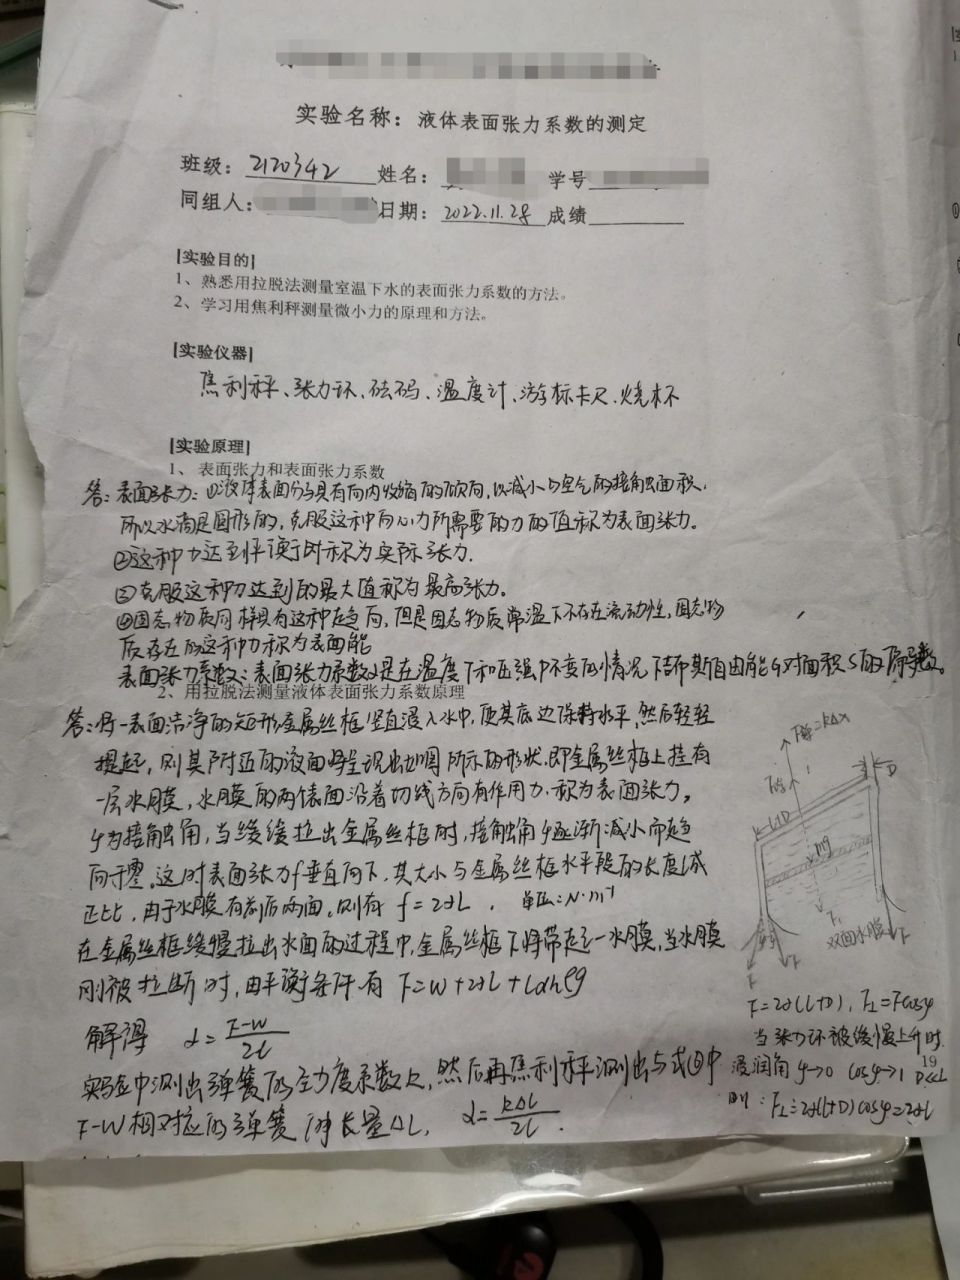 实验名称：液体表面张力系数的测定
班级：2120342 姓名： 学号
同组人： 日期：2022.11.28 成绩
[实验目的]
1、熟悉用拉脱法测量室温下水的表面张力系数的方法。
2、学习用焦利秤测量微小力的原理和方法。
[实验仪器]
焦利秤、张力环、砝码、温度计、游标卡尺、烧杯
[实验原理]
1、表面张力和表面张力系数
答：表面张力：①液体表面分子具有向内收缩的倾向，以减小与空气的接触面积，
所以水滴是圆形的，克服这种向心力所需要的力的值称为表面张力。
②这种力达到平衡时称为实际张力.
③克服这种力达到的最大值称为最高张力。
④固态物质同样具有这种趋向，但是固态物质常温下不存在流动性，固态物
质存在的这种力称为表面能
表面张力系数：表面张力系数α是在温度T和压强P不变的情况下吉布斯自由能G对面积S的偏导数。
2、用拉脱法测量液体表面张力系数原理
答：将一表面洁净的矩形金属丝框竖直浸入水中，使其底边保持水平，然后轻轻
提起，则其附近的液面将呈现出如图所示的形状，即金属丝框上挂有
一层水膜，水膜的两个表面沿着切线方向有作用力，称为表面张力。
φ为接触角，当缓缓拉出金属丝框时，接触角φ逐渐减小而趋
向于零。这时表面张力f垂直向下，其大小与金属丝框水平段的长度l成
正比，由于水膜有前后两面，则有 f=2αL . 单位：N·m⁻¹
在金属丝框缓慢拉出水面的过程中，金属丝框下将带起一水膜，当水膜
刚被拉断时，由平衡条件有 F=W+2αL+Ldhρg
解得 α=F-W/2L
实验中测出弹簧的劲度系数k，然后再焦利秤测出与式①中
F-W相对应的弹簧伸长量ΔL，α=kΔL/2L.
F弹=kΔx
D
L+D
mg
F₁
双面水膜
F
F
F
F
F=2α(L+D)，F⊥=Fcosφ
当张力环被缓慢上升时
浸润角φ→0 cosφ→1 D≪L
19
则：F⊥=2α(L+D)cosφ=2αL